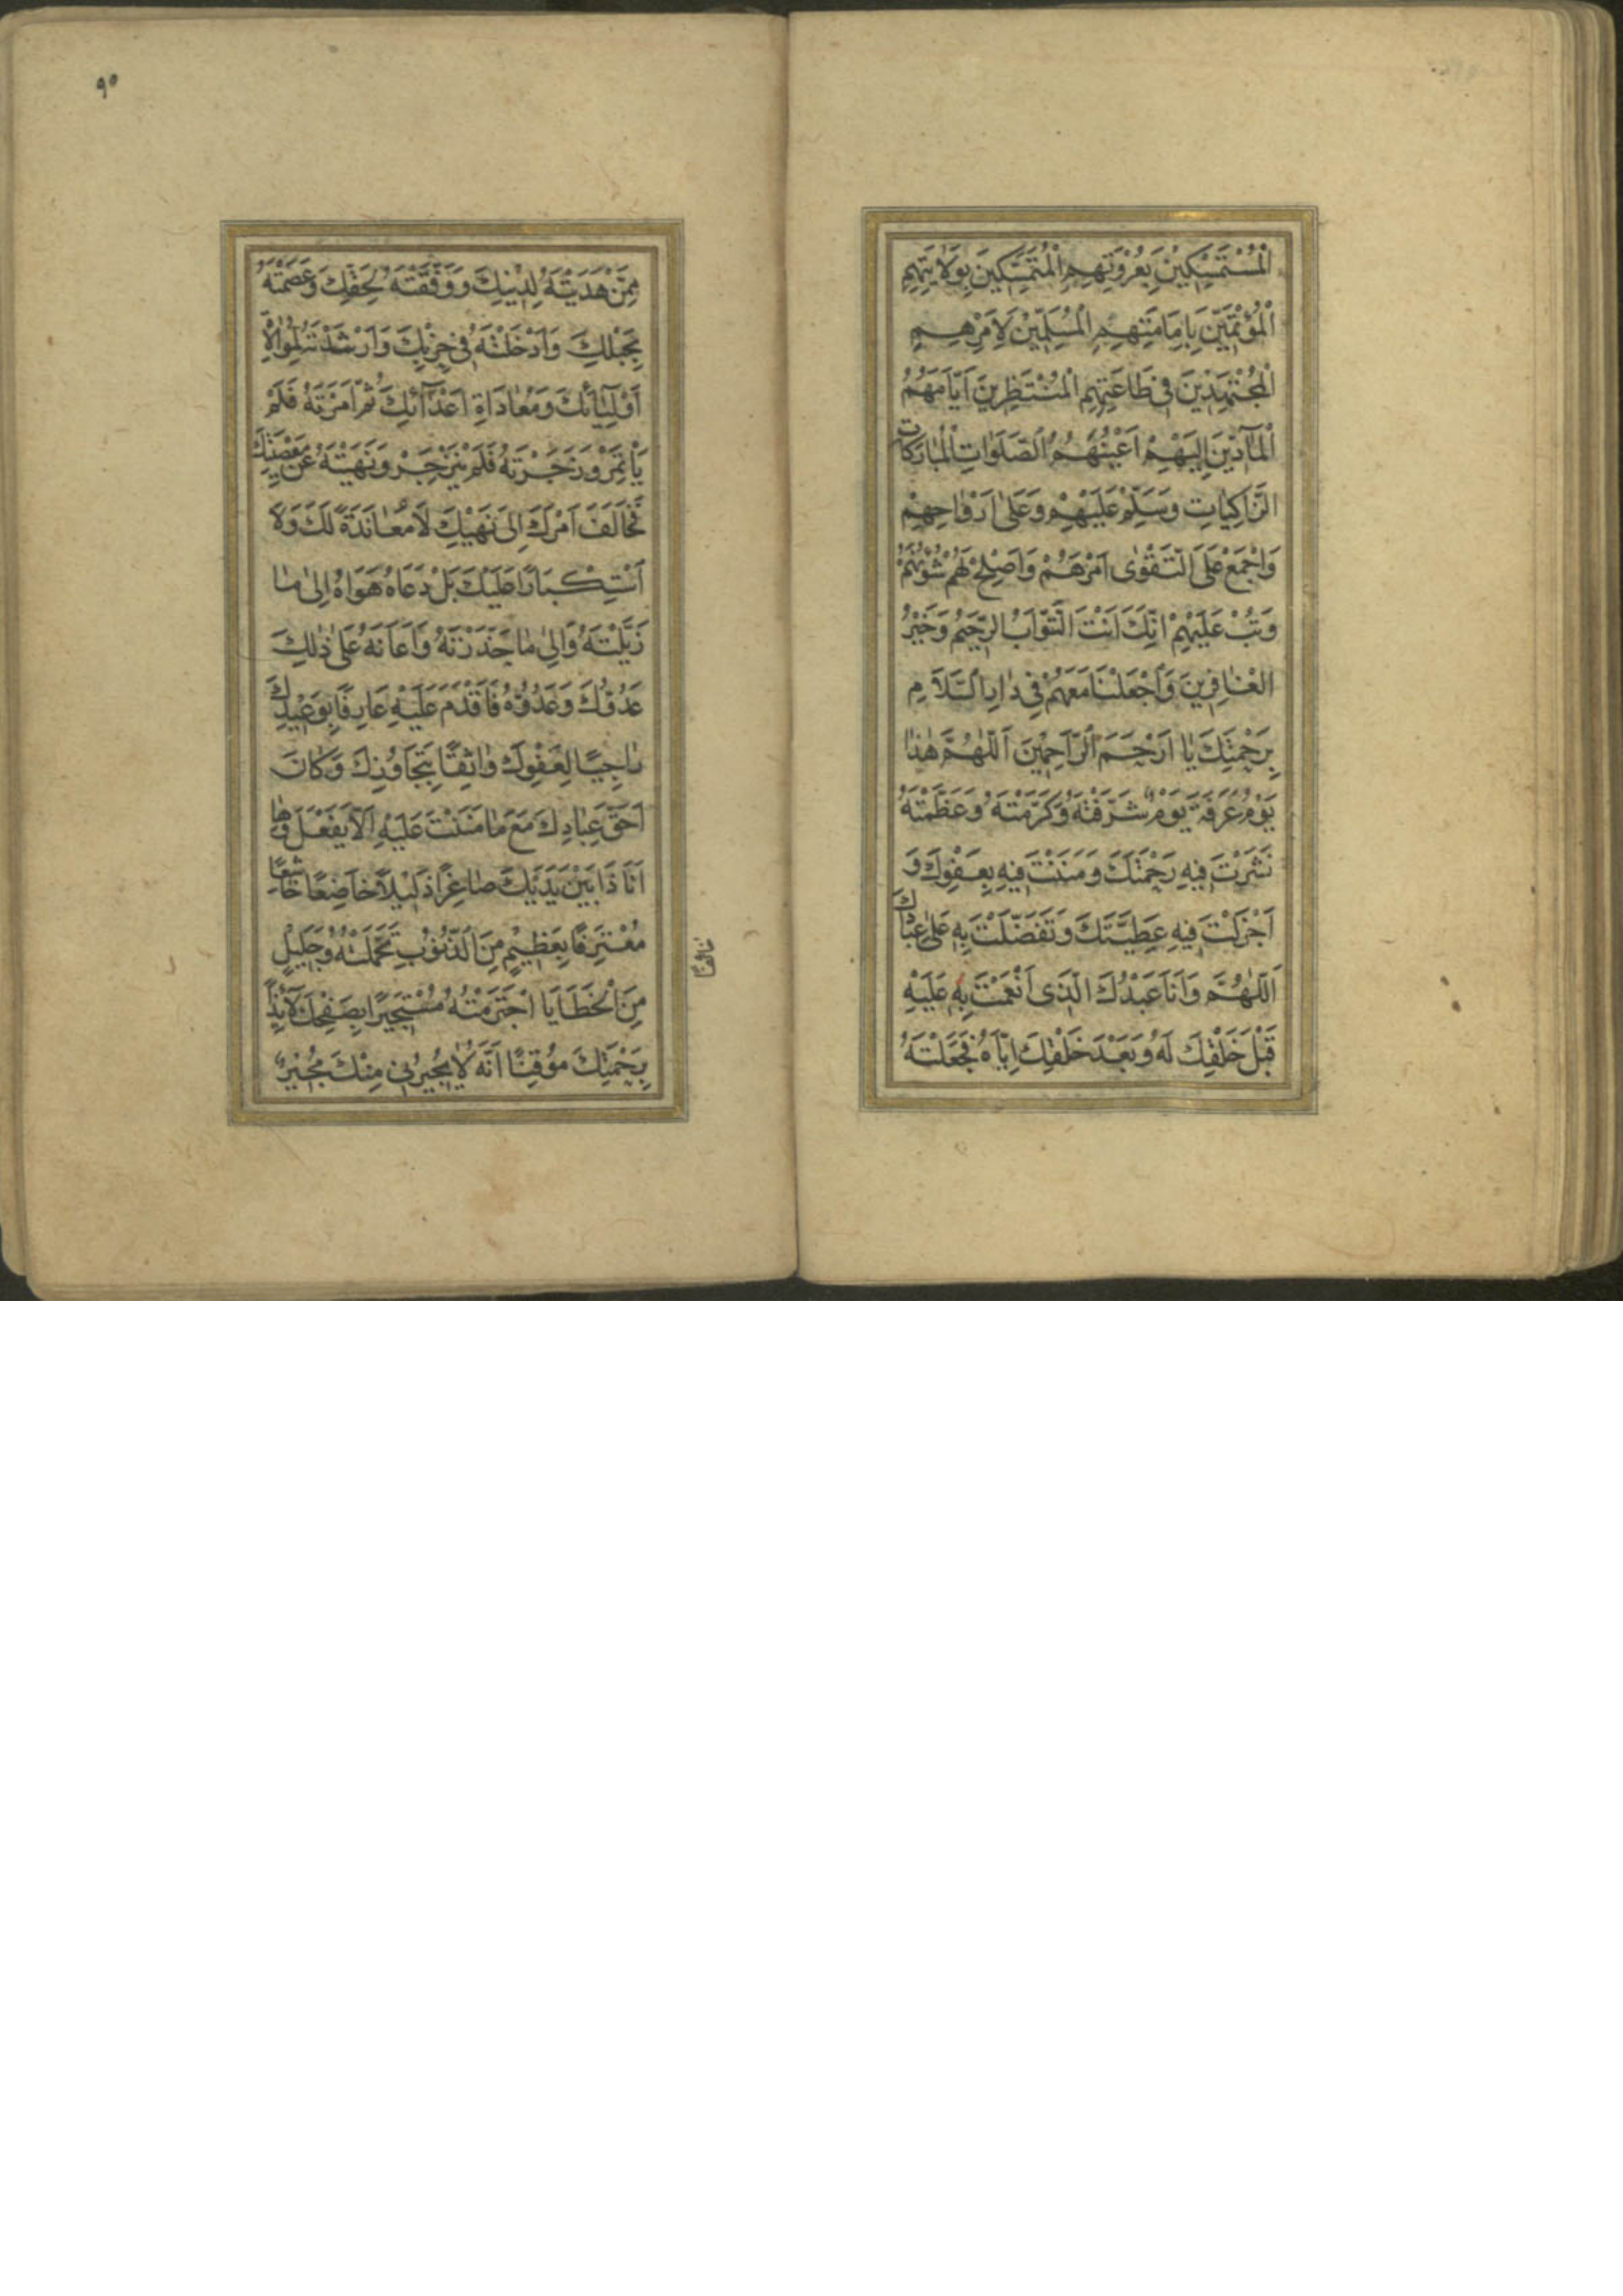 الْمُسْتَمْسِكِينَ بِعُرْوَتِهِمِ الْمُتَمَسِّكِينَ بِوَلَايَتِهِمِ
الْمُؤْتَمِّينَ بِإِمَامَتِهِمِ الْمُسَلِّمِينَ لِأَمْرِهِمِ
الْمُجْتَهِدِينَ فِي طَاعَتِهِمِ الْمُنْتَظِرِينَ أَيَّامَهُمُ
الْمَآدِّينَ إِلَيْهِمْ أَعْيُنَهُمُ الصَّلَوَاتِ الْمُبَارَكَاتِ
الزَّاكِيَاتِ وَسَلِّمْ عَلَيْهِمْ وَعَلَى أَرْوَاحِهِمْ
وَاجْمَعْ عَلَى التَّقْوَى أَمْرَهُمْ وَأَصْلِحْ لَهُمْ شُؤُنَهُمْ
وَتُبْ عَلَيْهِمْ إِنَّكَ أَنْتَ التَّوَّابُ الرَّحِيمُ وَخَيْرُ
الْغَافِرِينَ وَاجْعَلْنَا مَعَهُمْ فِي دَارِ السَّلَامِ
بِرَحْمَتِكَ يَا أَرْحَمَ الرَّاحِمِينَ اَللّٰهُمَّ هٰذَا
يَوْمُ عَرَفَةَ يَوْمٌ شَرَّفْتَهُ وَكَرَّمْتَهُ وَعَظَّمْتَهُ
نَشَرْتَ فِيهِ رَحْمَتَكَ وَمَنَنْتَ فِيهِ بِعَفْوِكَ وَ
أَجْزَلْتَ فِيهِ عَطِيَّتَكَ وَتَفَضَّلْتَ بِهِ عَلَى عِبَادِكَ
اَللّٰهُمَّ وَأَنَا عَبْدُكَ الَّذِي أَنْعَمْتَ بِهِ عَلَيْهِ
قَبْلَ خَلْقِكَ لَهُ وَبَعْدَ خَلْقِكَ إِيَّاهُ فَجَعَلْتَهُ
٩٠
مِمَّنْ هَدَيْتَهُ لِدِينِكَ وَوَفَّقْتَهُ لِحَقِّكَ وَعَصَمْتَهُ
بِحَبْلِكَ وَأَدْخَلْتَهُ فِي حِزْبِكَ وَأَرْشَدْتَهُ لِمُوَالَاةِ
أَوْلِيَآئِكَ وَمُعَادَاةِ أَعْدَآئِكَ ثُمَّ أَمَرْتَهُ فَلَمْ
يَأْتَمِرْ وَزَجَرْتَهُ فَلَمْ يَنْزَجِرْ وَنَهَيْتَهُ عَنْ مَعْصِيَتِكَ
فَخَالَفَ أَمْرَكَ إِلَى نَهْيِكَ لَا مُعَانَدَةً لَكَ وَلَا
اسْتِكْبَارًا عَلَيْكَ بَلْ دَعَاهُ هَوَاهُ إِلَى مَا
زَيَّلْتَهُ وَإِلَى مَا حَذَّرْتَهُ وَأَعَانَهُ عَلَى ذٰلِكَ
عَدُوُّكَ وَعَدُوُّهُ فَأَقْدَمَ عَلَيْهِ عَارِفًا بِوَعِيدِكَ
رَاجِيًا لِعَفْوِكَ وَاثِقًا بِتَجَاوُزِكَ وَكَانَ
أَحَقَّ عِبَادِكَ مَعَ مَا مَنَنْتَ عَلَيْهِ أَلَّا يَفْعَلَ وَهَا
أَنَا ذَا بَيْنَ يَدَيْكَ صَاغِرًا ذَلِيلًا خَاضِعًا خَاشِعًا
مُعْتَرِفًا بِعَظِيمٍ مِنَ الذُّنُوبِ تَحَمَّلْتُهُ وَجَلِيلٍ
مِنَ الْخَطَايَا اجْتَرَمْتُهُ مُسْتَجِيرًا بِصَفْحِكَ لَآئِذًا
بِرَحْمَتِكَ مُوقِنًا أَنَّهُ لَا يُجِيرُنِي مِنْكَ مُجِيرٌ
خَائِفًا